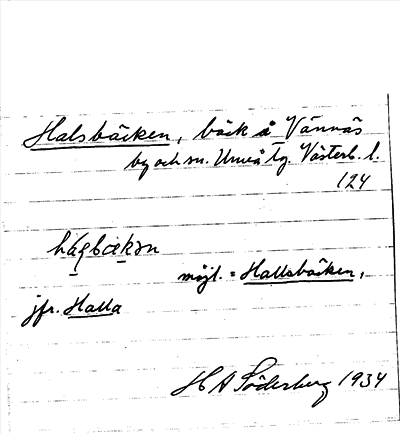 Halsbäcken, bäck å Vännäs
by och sn. Umeå tg. Västerb. l.
124
möjl. = Hallsbäcken,
jfr. Halla
H A Söderberg 1934